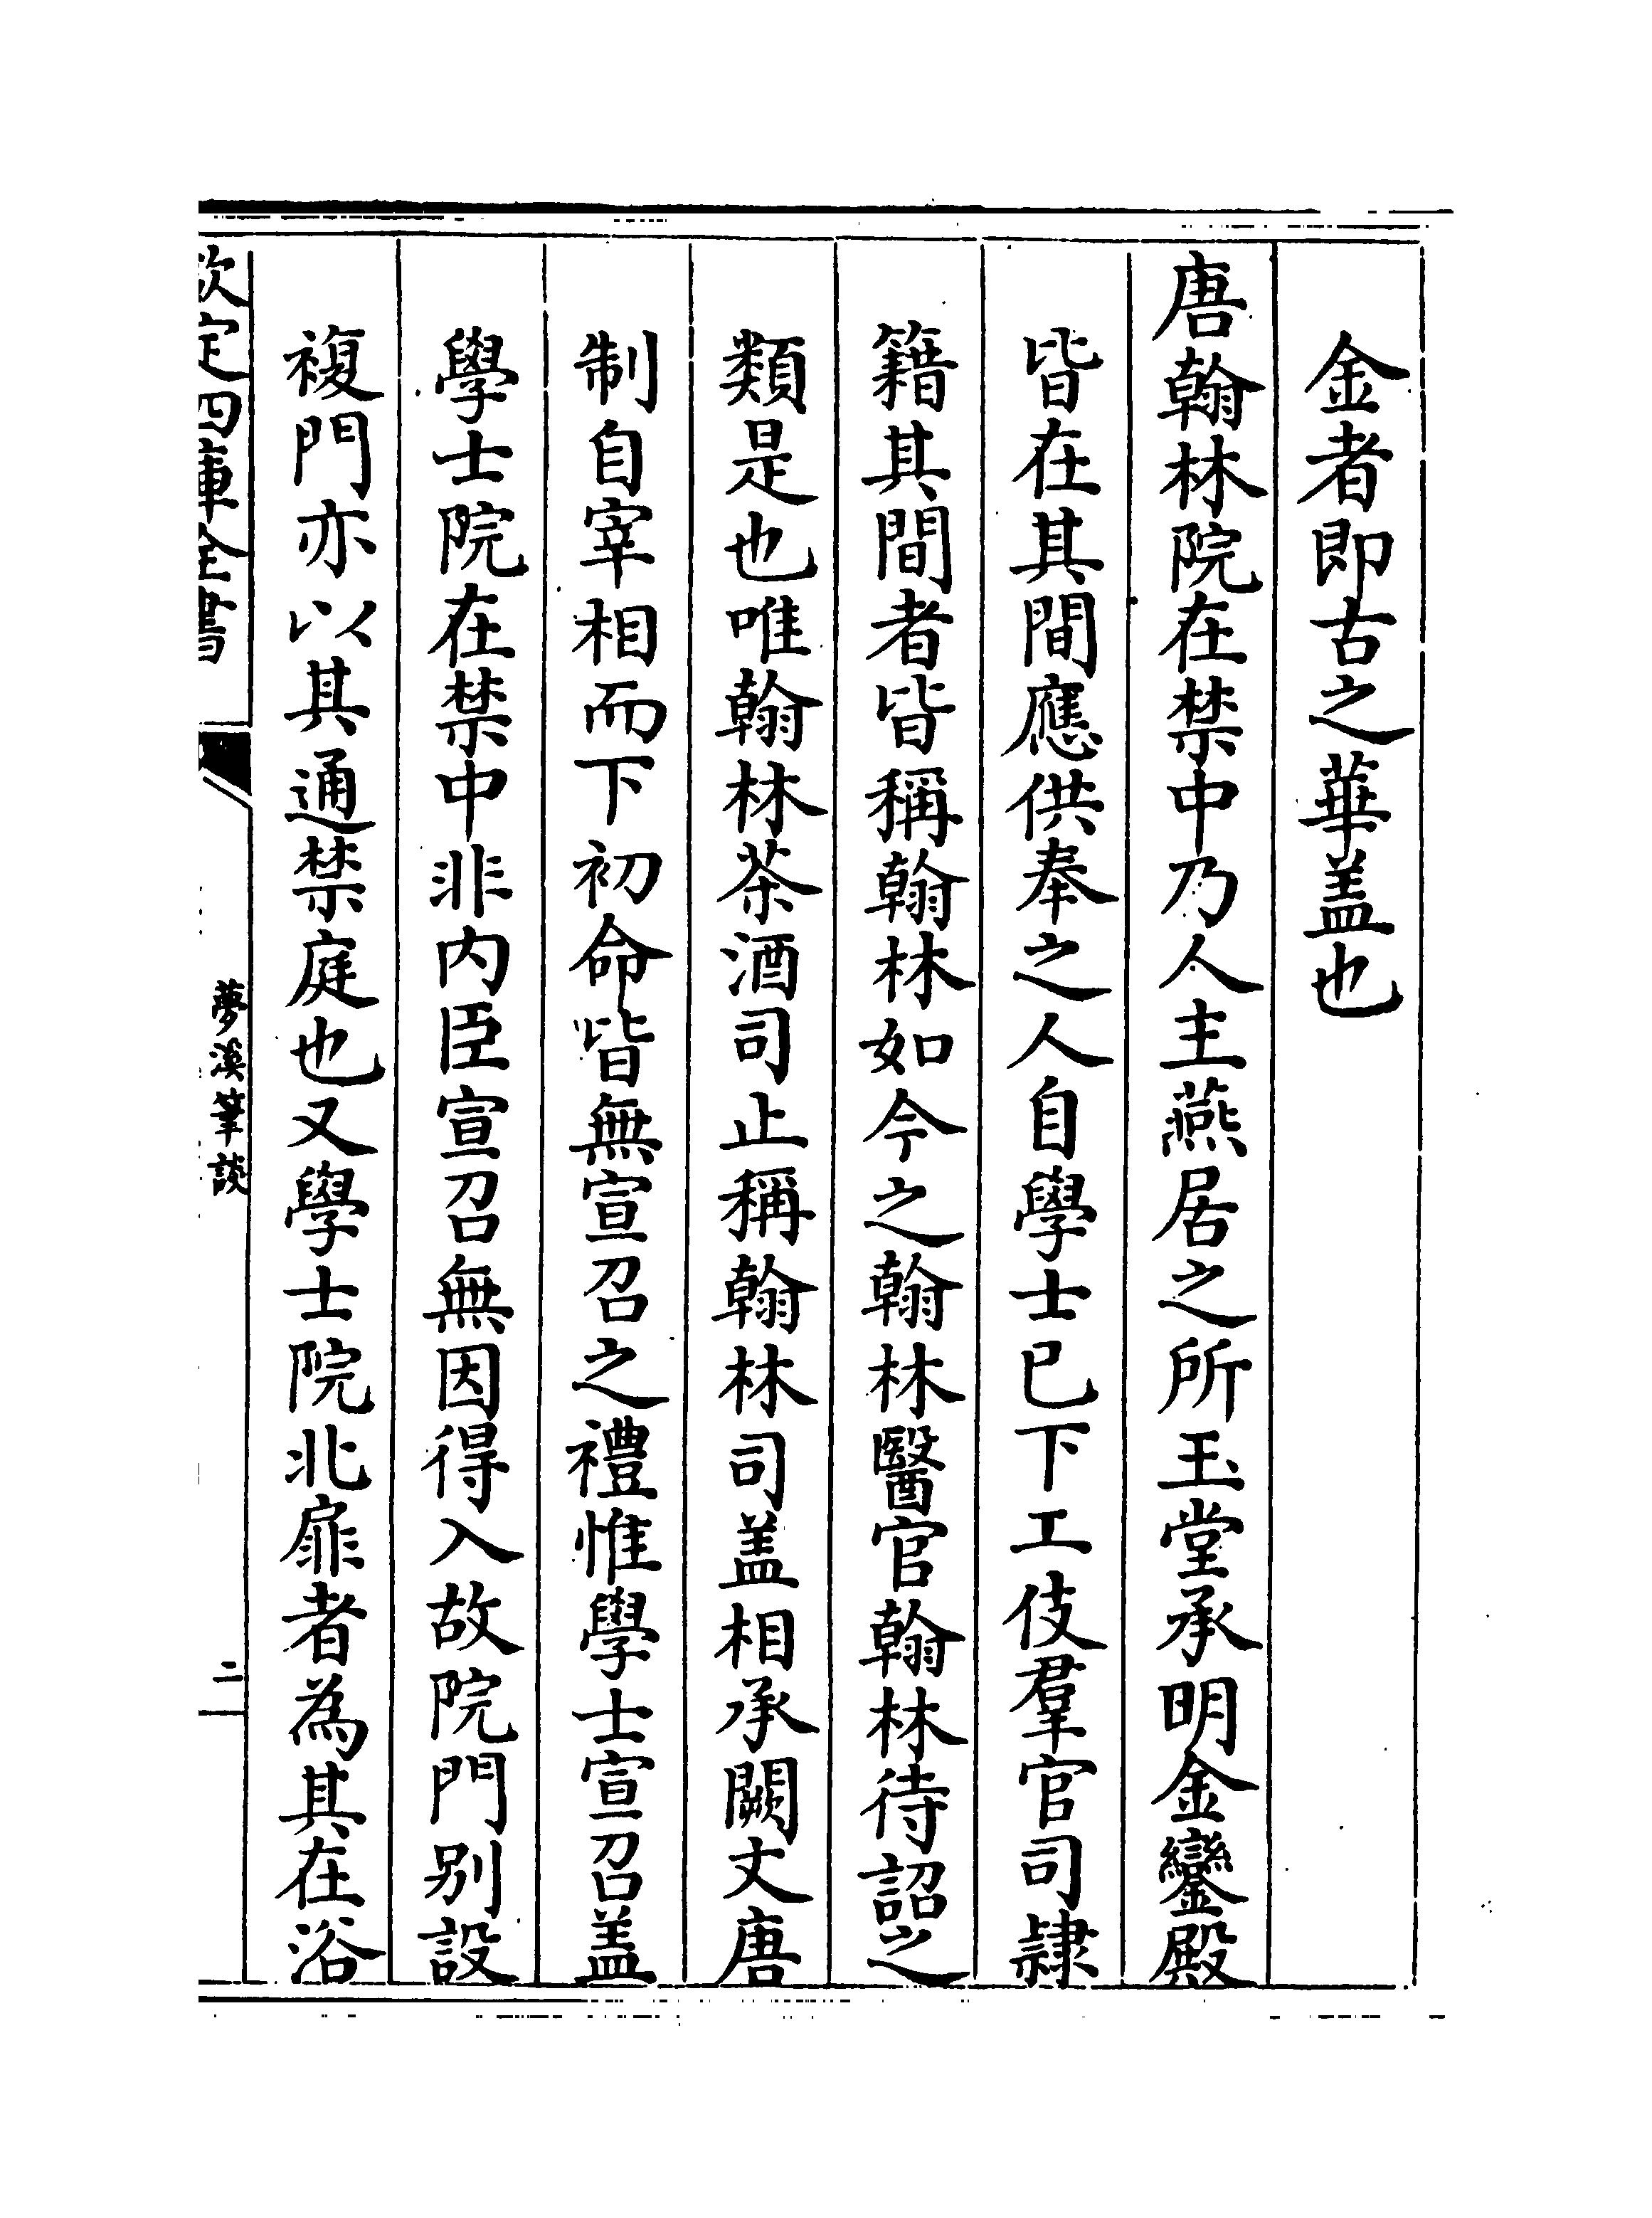 金者即古之華盖也
唐翰林院在禁中乃人主燕居之所玉堂承明金鑾殿
皆在其間應供奉之人自學士已下工伎羣官司隷
籍其間者皆稱翰林如今之翰林醫官翰林待詔之
類是也唯翰林茶酒司止稱翰林司盖相承闕文唐
制自宰相而下初命皆無宣召之禮惟學士宣召盖
學士院在禁中非内臣宣召無因得入故院門别設
複門亦以其通禁庭也又學士院北扉者為其在浴
欽定四庫全書
夢溪筆談
二